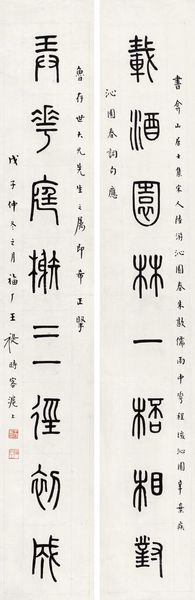 書龠山居士集宋人陸游沁園春朱敦儒雨中花程垓沁園春辛棄疾
載酒園林一梧相對
沁園春詞句應
魯存世大兄先生之屬即希正擊
弄花庭榭三徑初成
戊子仲冬之月福厂王禔時客滬上